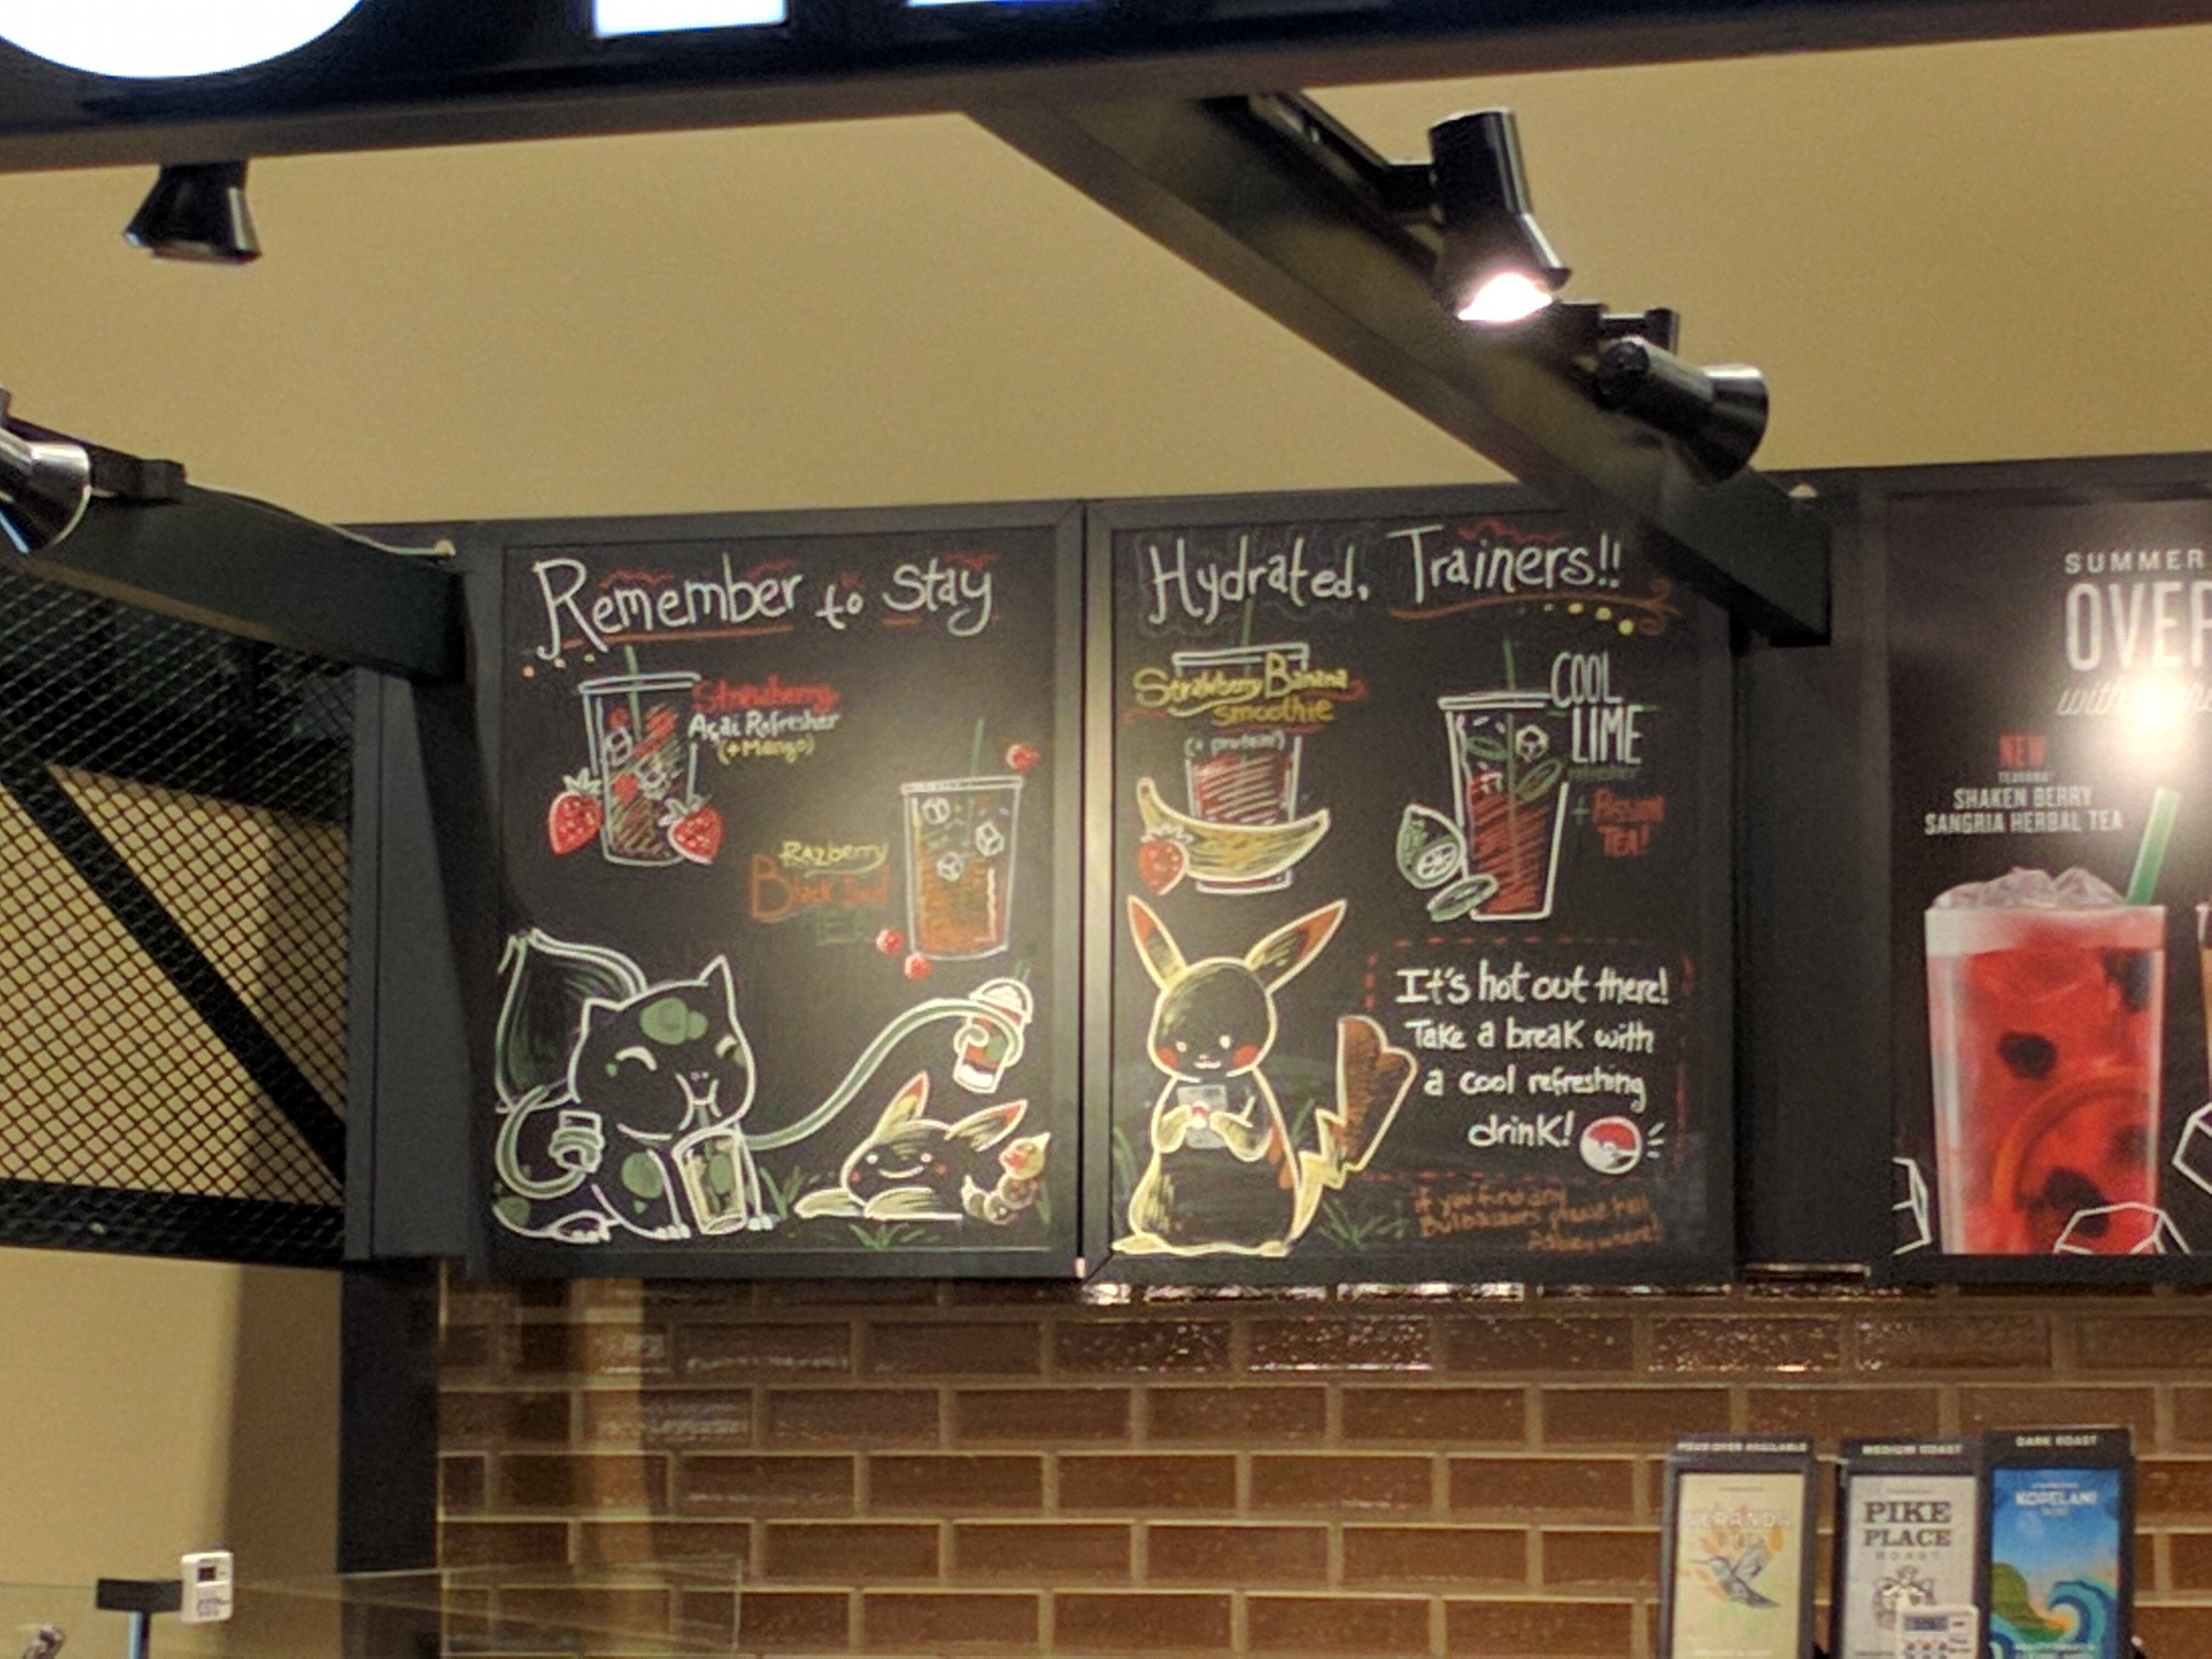 Remember to stay
Strawberry
Açaí Refresher
(+Mango)
Razberry
Black Iced
TEA
Hydrated, Trainers!!
Strawberry Banana
smoothie
(+ protein!)
COOL
LIME
refresher
+ Passion
TEA!
It's hot out there!
Take a break with
a cool refreshing
drink!
if you find any
Bulbasaurs please tell
SUMMER
OVER
with
NEW
TEAVANA
SHAKEN BERRY
SANGRIA HERBAL TEA
POUR-OVER AVAILABLE
VERANDA
MEDIUM ROAST
PIKE
PLACE
ROAST
DARK ROAST
KOPELANI